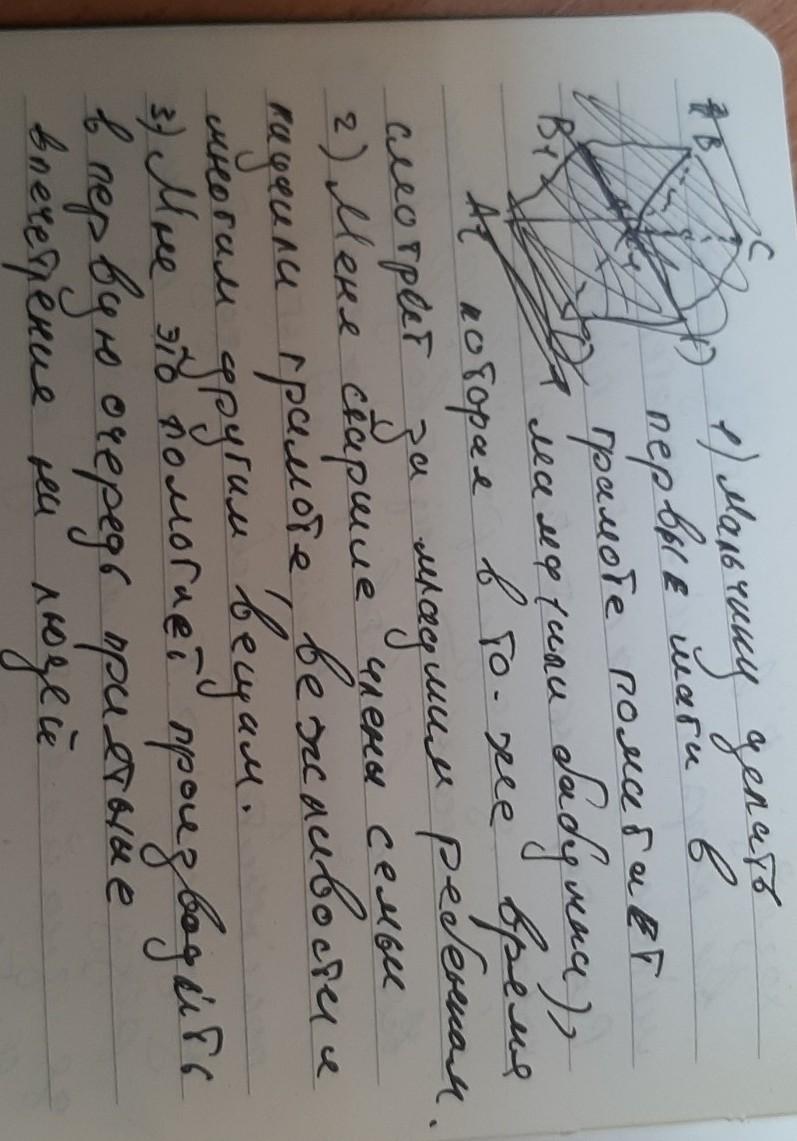 B
C
B1
D
A1
1) Мальчику делать
первые шаги в
грамоте помагает
мама (или бабушка),
которая в то-же время
смотрит за младшим ребенком.
2) Меня старшие члены семьи
грамоте, вежливости и
многим другим вещам.
3) Мне это помогает производить
в первую очередь приятные
впечетление на людей